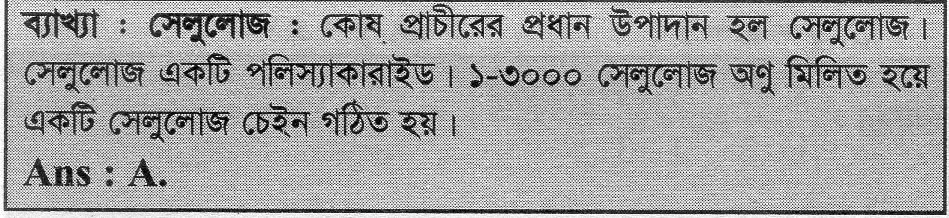 ব্যাখ্যা : সেলুলোজ : কোষ প্রাচীরের প্রধান উপাদান হল সেলুলোজ।
সেলুলোজ একটি পলিস্যাকারাইড। ১-৩০০০ সেলুলোজ অণু মিলিত হয়ে
একটি সেলুলোজ চেইন গঠিত হয়।
Ans : A.